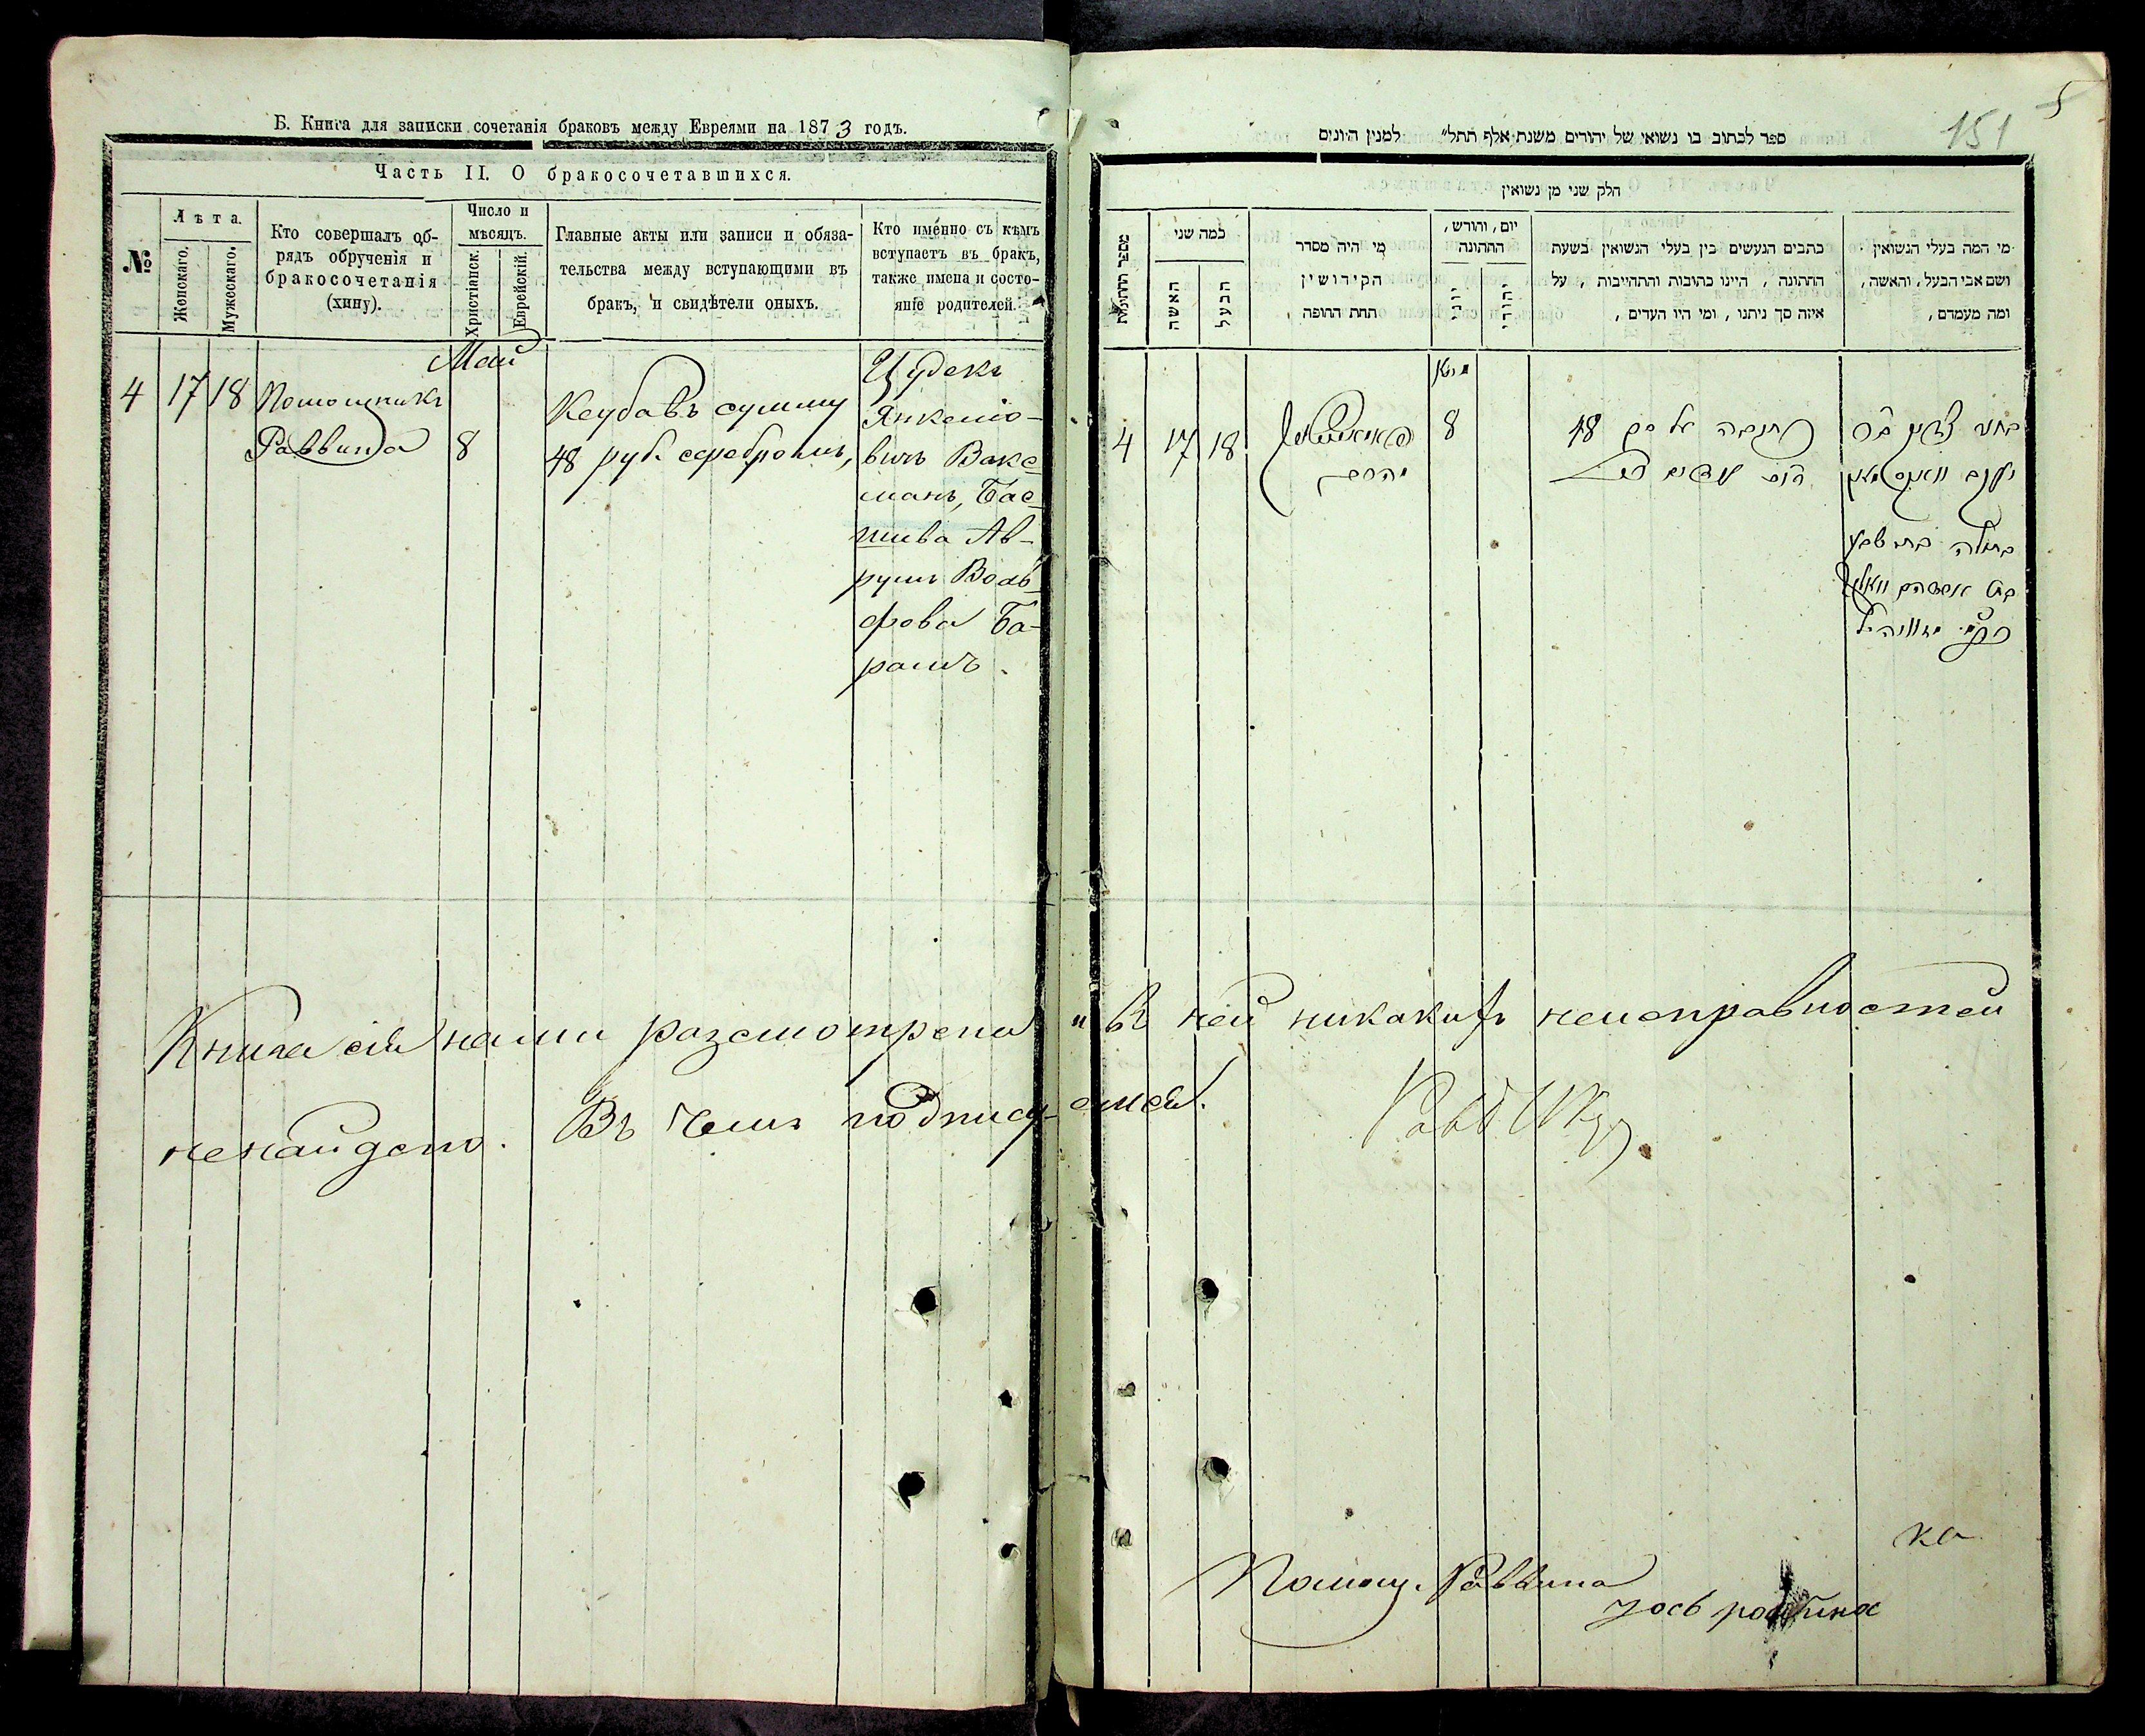 Б. Книга для записки сочетанія браковъ между Евреями на 1873 годъ.
Часть II. О бракосочетавшихся.
№
Лѣта.
Женскаго.
Мужескаго.
Кто совершалъ об-
рядъ обрученія и
бракосочетанія
(хину).
Число и
мѣсяцъ.
Христіанск.
Еврейскій.
Главные акты или записи и обяза-
тельства между вступающими въ
бракъ, и свидѣтели оныхъ.
Кто именно съ кѣмъ
вступаетъ въ бракъ,
также имена и состо-
яніе родителей.
Май
4
17
18
Помощникъ
Раввина
8
Кеубавъ сумму
48 руб. серебромъ,
Цудекъ
Янкеліо-
вичъ Вакс-
манъ, Бас-
шива Ав-
румъ Воль-
фова Ба-
рамъ.
Книга сія нами разсмотрена и въ ней никакихъ неисправностей
ненайдено. Въ чемъ подпису-емся.
151
5
ספר לכתוב בו נשואי של יהורים משנת אלף תתל״ למנין היונים
חלק שני מן נשואין
מספר החתונות
כמה שני
האשה
הבעל
מי היה מסדר
הקידושין
תחת החופה
יום, והורש,
החתונה
יוני
יהודי
כתבים הנעשים בין בעלי הנשואין בשעת
החתונה, היינו כתובות והתחייבות, על
איזה סך ניתנו, ומי היו העדים,
מי המה בעלי הנשואין
ושם אבי הבעל, והאשה,
ומה מעמדם,
4
17
18
8
48
בתולה בת שבע
Помощ. Раввина